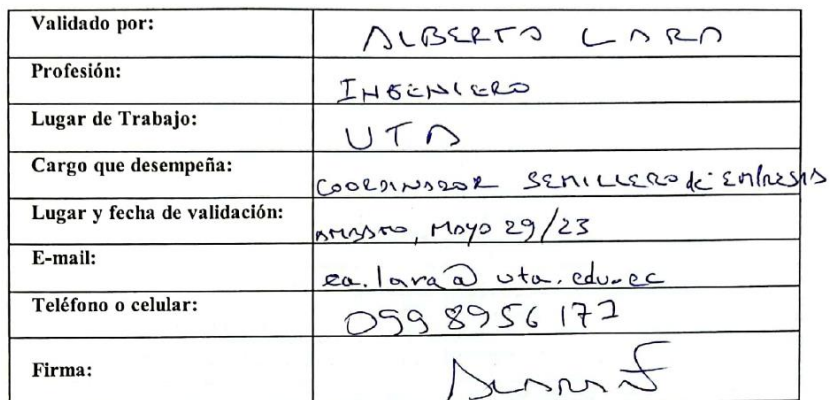 Validado por: ALBERTO LARA
Profesión: INGENIERO
Lugar de Trabajo: UTA
Cargo que desempeña: COORDINADOR SEMILLERO de EMPRESAS
Lugar y fecha de validación: AMBATO, MAYO 29/23
E-mail: ea.lara@uta.edu.ec
Teléfono o celular:
Firma: